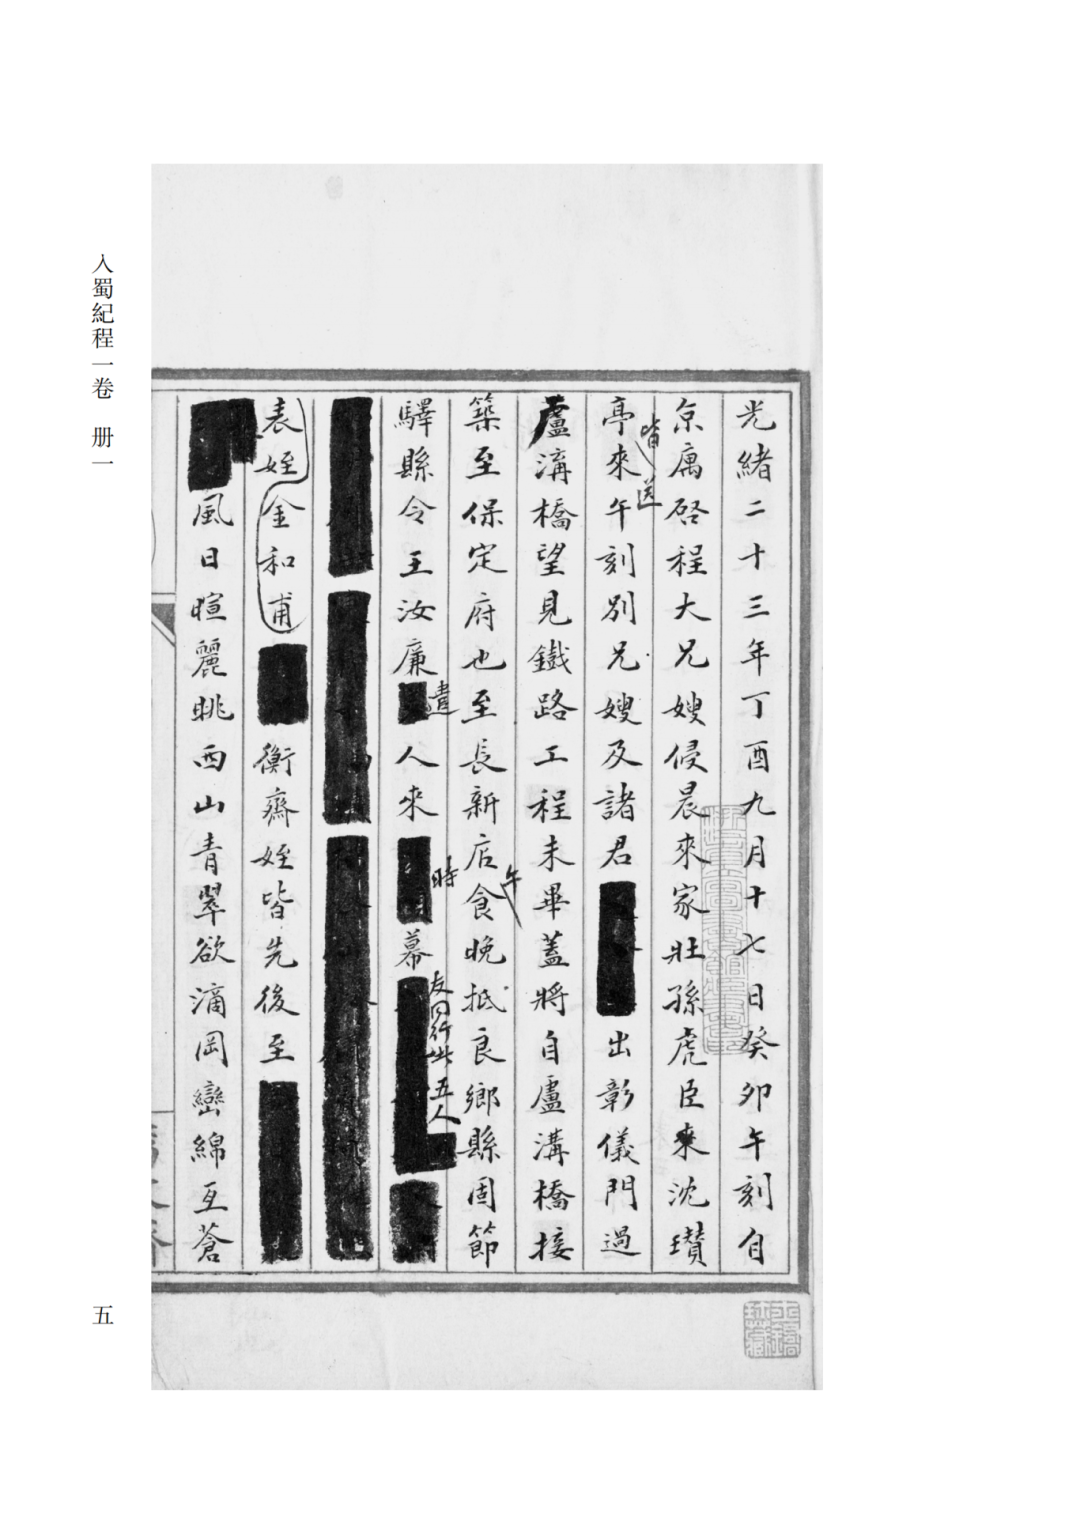 光緒二十三年丁酉九月十七日癸卯午刻自
京寓啓程大兄嫂侵晨來家壯孫虎臣來沈瓚
亭來皆送午刻別兄嫂及諸君出彰儀門過
盧溝橋望見鐵路工程未畢蓋將自盧溝橋接
築至保定府也至長新店午食晚抵良鄉縣固節
驛縣令王汝廉遣人來時幕友同行此五人
表姪金和甫衡齋姪皆先後至
風日暄麗眺西山青翠欲滴岡巒綿亙蒼
入蜀紀程一卷 册一
五